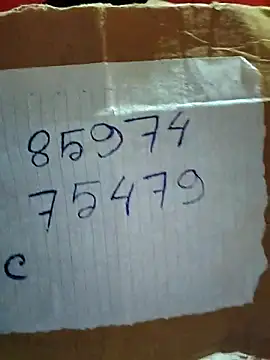 85974
75479
C